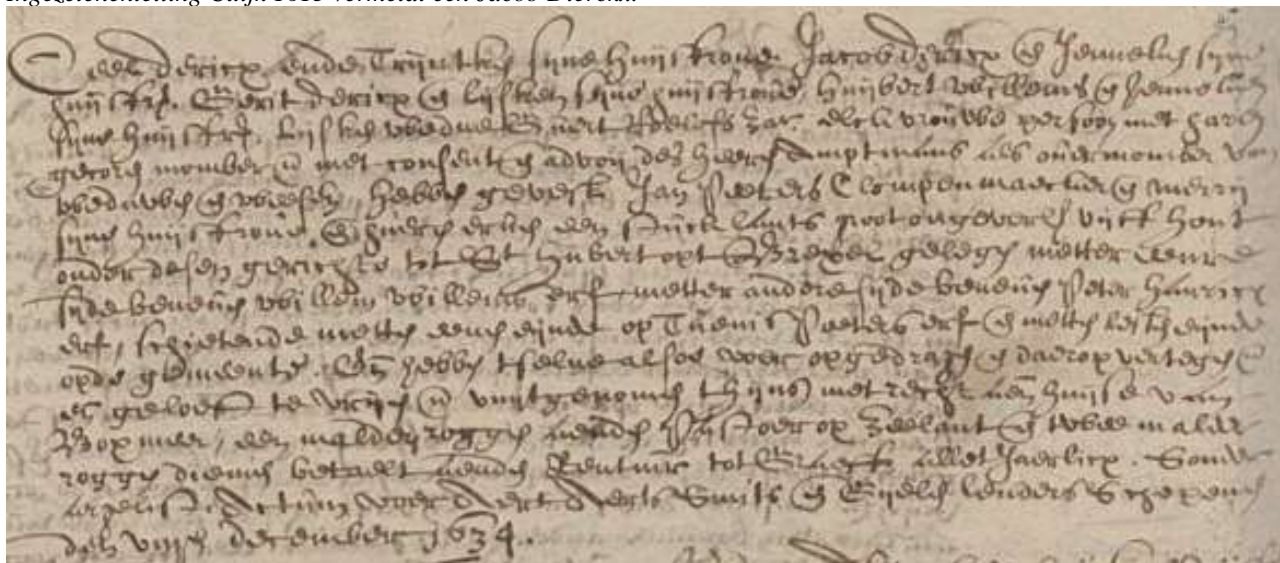 Deel dericx ende Trijntken sijne huijsfrouwe Jacob Dericx en Jenneken sijne
huijsfr. Gerit dericx en Lijsken sijne huijsfrouwe, Huijbert Willems en Jenneken
sijne huijsfr. Lijsken weduwe elck vrouwe persoon met haren
gecoren momber en met consent en advoij des heeren Amptmans als overmomber van
weduwen en weesen, hebben Jan Peeters Clompenmaecker en Merrij
sijne huijsfrouwe en hueren erven een stuck lants groot ongeverlick vijff hont
onder desen gerichte tot St Hubert opt gelegen metter eenre
sijde beneven Willem Willems erf, metter andere sijde beneven Peter Hanricx
erf, schietende metten eenen eijnde op Tuenis Peeters erf en metten eijnde
opde gemeente. En hebben tselve alsoe voer opgedragen en daerop vertegen en
geloeft te vrijen en uuijtgenomen thijns met recht aen huijse van
Boxmeer, een malder roggen aenden Pastoer op Zeelant en twee malder
roggen betaelt aenden Rentmr tot Graeff allet Jaerlicx. Sonder
argelist. Actum voer Aert Aerts Smits en Lenders Schepenen
den viijen december 1634.